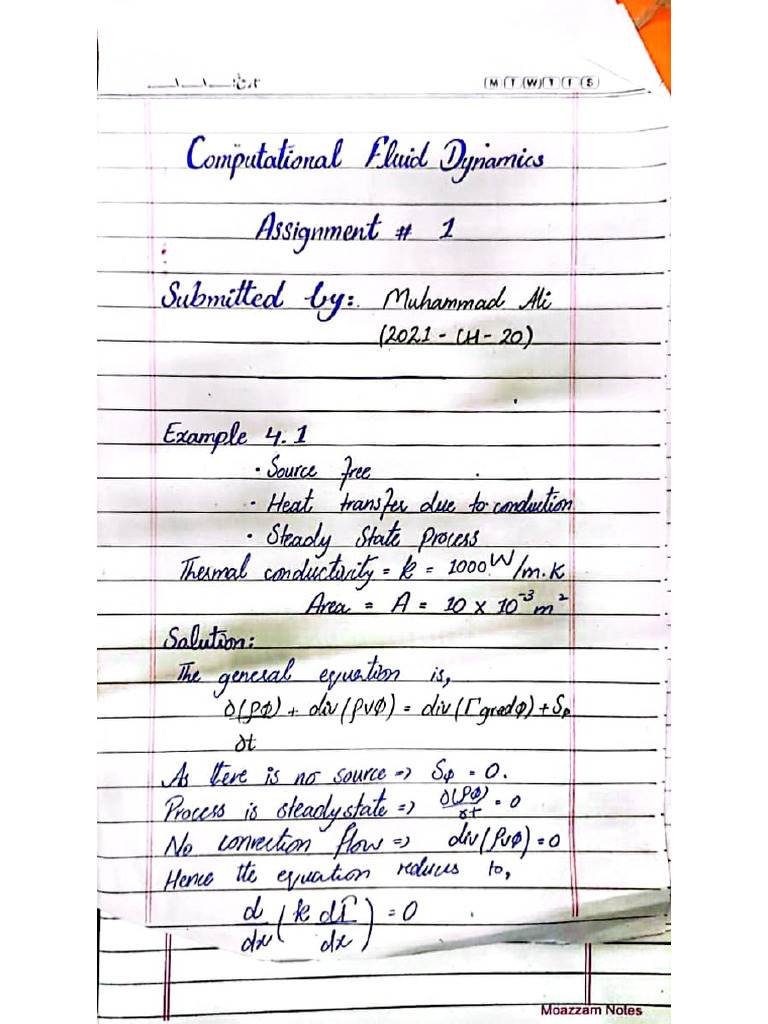 تاریخ: ___/___/___ M T W T F S
Computational Fluid Dynamics
Assignment # 1
Submitted by: Muhammad Ali
(2021 - CH - 20)
Example 4.1
• Source free
• Heat transfer due to conduction
• Steady State Process
Thermal conductivity = k = 1000 W/m.K
Area = A = 10 × 10⁻³ m²
Solution:
The general equation is,
∂(ρΦ)/∂t + div(ρvΦ) = div(Γ grad Φ) + Sₚ
As there is no source => Sφ = 0.
Process is steady state => ∂(ρΦ)/∂t = 0
No convection flow => div(ρvΦ) = 0
Hence the equation reduces to,
d/dx (k dT/dx) = 0
Moazzam Notes